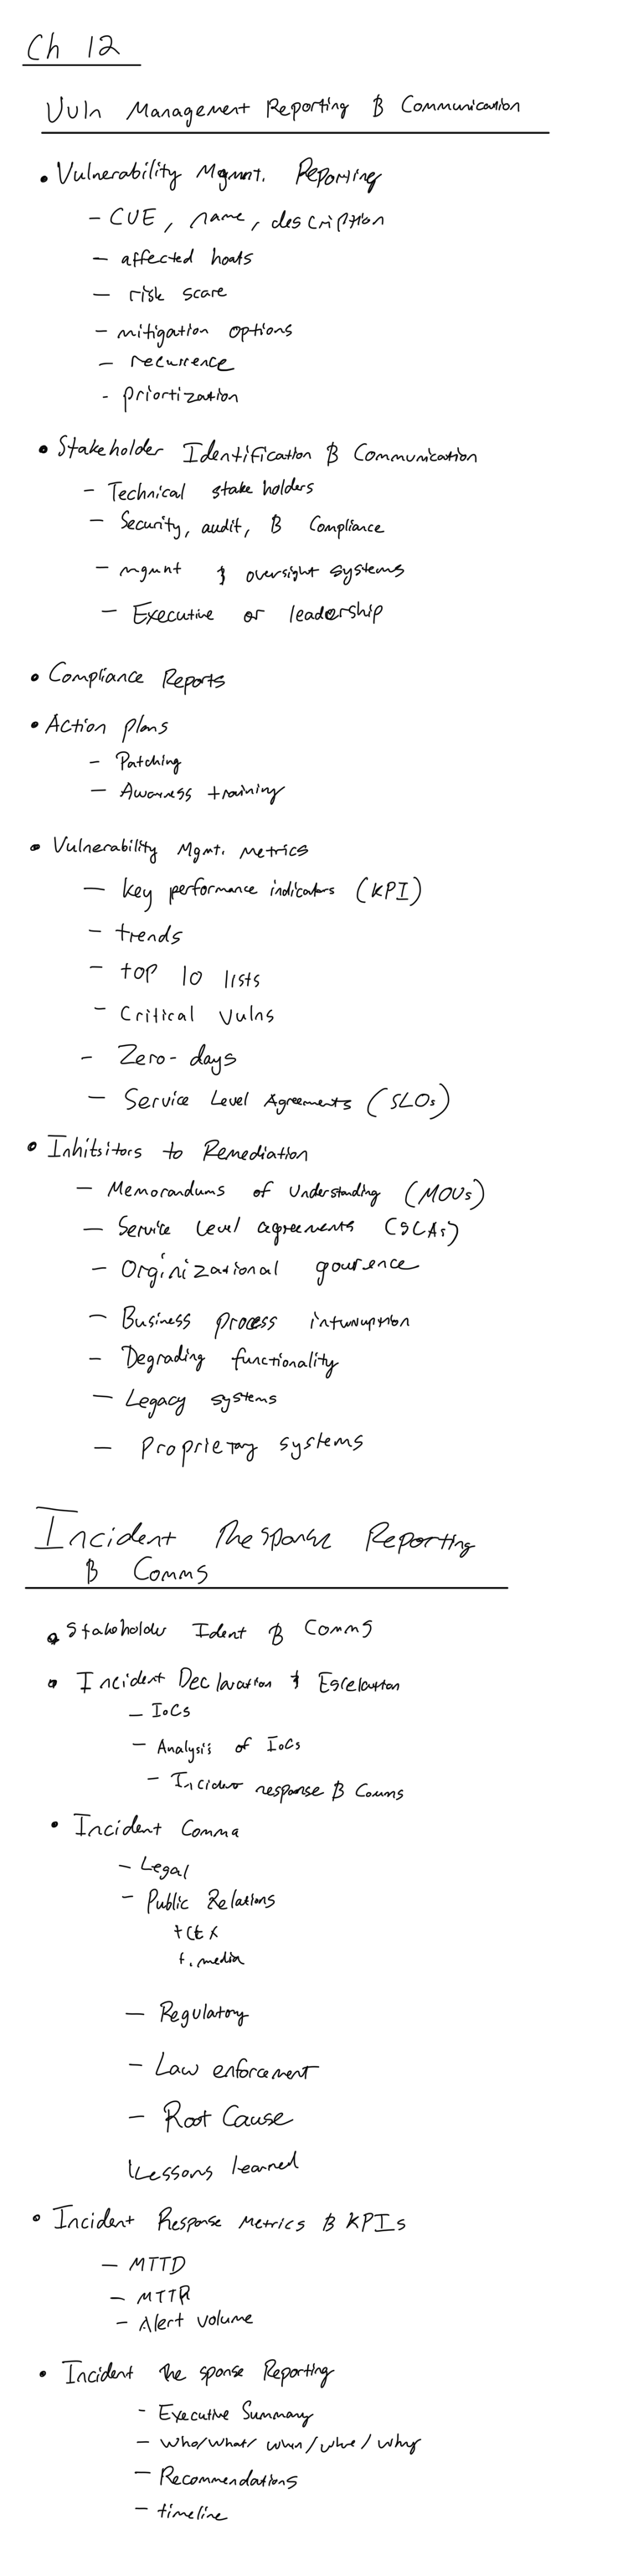 Ch 12
Vuln Management Reporting & Communication
• Vulnerability Mgmnt. Reporting
- CVE, name, description
- affected hosts
- risk score
- mitigation options
- recurrence
- priortization
• Stakeholder Identification & Communication
- Technical stake holders
- Security, audit, & Compliance
- mgmnt & oversight systems
- Executive or leadership
• Compliance Reports
• Action plans
- Patching
- Awarness training
• Vulnerability Mgmt. Metrics
- key performance indicators (KPI)
- trends
- top 10 lists
- Critical Vulns
- Zero-days
- Service Level Agreements (SLOs)
• Inhibitors to Remediation
- Memorandums of Understanding (MOUs)
- Service Level agreements (SLAs)
- Orginizational gourence
- Business process interruption
- Degrading functionality
- Legacy systems
- Proprietary systems
Incident Response Reporting
& Comms
• Stakeholder Ident & Comms
• Incident Declaration & Escelation
- IoCs
- Analysis of IoCs
- Incident response & Comms
• Incident Comms
- Legal
- Public Relations
+ media
- Regulatory
- Law enforcement
- Root Cause
Lessons learned
• Incident Response Metrics & KPIs
- MTTD
- MTTR
- Alert volume
• Incident Response Reporting
- Executive Summary
- Who/What/When/Where/Why
- Recommendations
- timeline